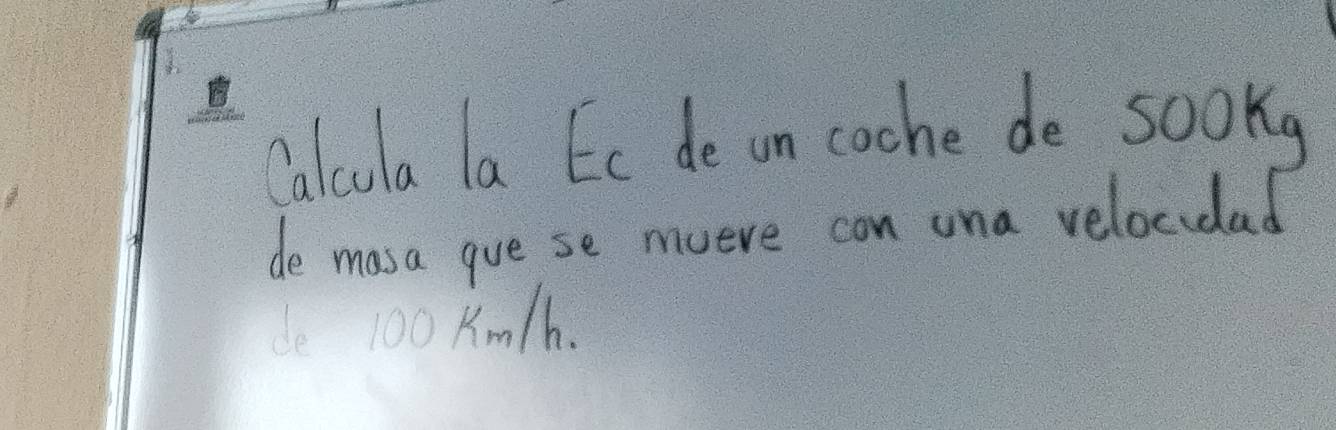 Calcula la Ec de un coche de 500Kg
de masa que se mueve con una velocidad
de 100 Km/h.